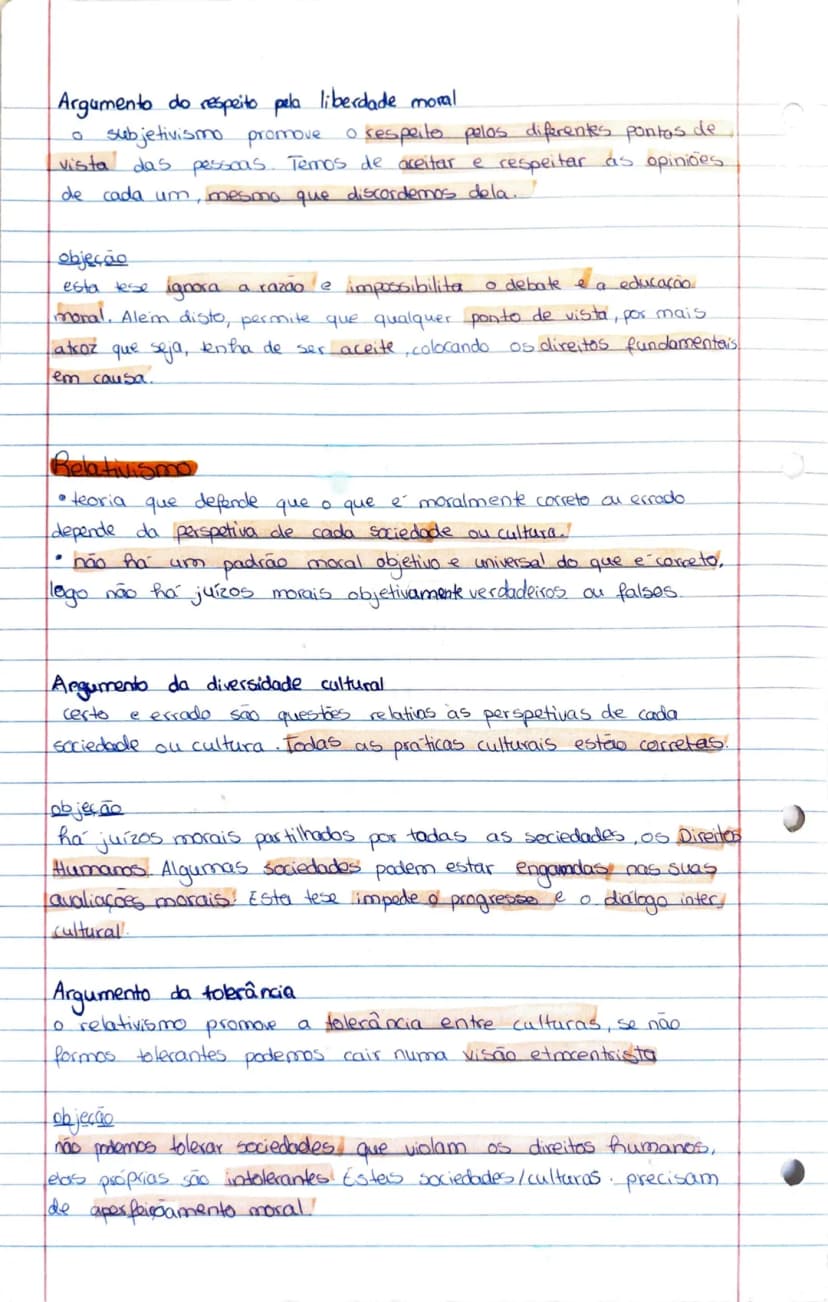 Argumento do respeito pela liberdade moral
o subjetivismo promove o respeito pelos diferentes pontos de
vista das pessoas. Temos de aceitar e respeitar as opiniões
de cada um, mesmo que discordemos dela.
objeção
esta tese ignora a razão e impossibilita o debate e a educação
moral. Além disto, permite que qualquer ponto de vista, por mais
atroz que seja, tenha de ser aceite, colocando os direitos fundamentais
em causa.
Relativismo
• teoria que defende que o que é moralmente correto ou errado
depende da perspetiva de cada sociedade ou cultura.
• não há um padrão moral objetivo e universal do que é correto,
logo não há juízos morais objetivamente verdadeiros ou falsos.
Argumento da diversidade cultural
certo e errado são questões relativas às perspetivas de cada
sociedade ou cultura. Todas as práticas culturais estão corretas.
objeção
há juízos morais partilhados por todas as sociedades, os Direitos
Humanos. Algumas sociedades podem estar enganadas nas suas
avaliações morais. Esta tese impede o progresso e o diálogo inter
cultural.
Argumento da tolerância
o relativismo promove a tolerância entre culturas, se não
formos tolerantes podemos cair numa visão etnocentrista
objeção
não podemos tolerar sociedades que violam os direitos humanos,
elas próprias são intolerantes. Estas sociedades/culturas precisam
de aperfeiçoamento moral.